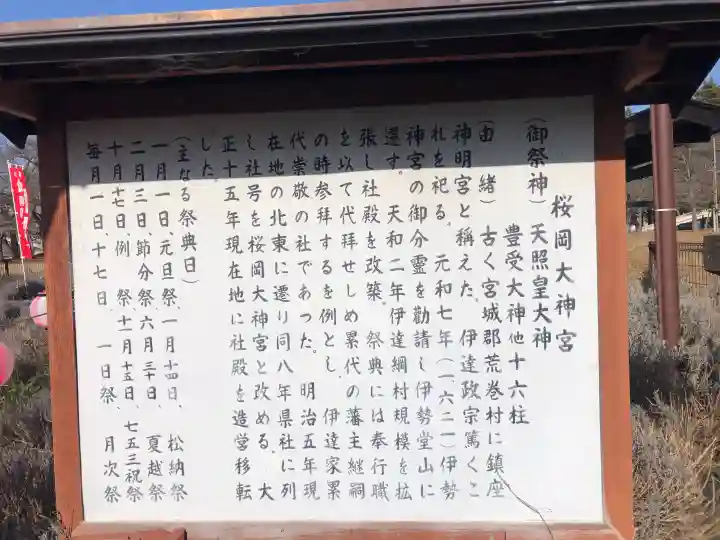 桜岡大神宮
(御祭神)天照皇大神
豊受大神他十六柱
(由緒)古く宮城郡荒巻村に鎮座
神明宮と称えた。伊達政宗篤くこ
れを祀る。元和七年(一、六二一)伊勢
神宮の御分霊を勧請し伊勢堂山に
遷す。天和二年伊達綱村規模を拡
張し社殿を改築。祭典には奉行職
を以て代拝せしめ累代の藩主継嗣
の時参拝するを例とし、伊達家累
代崇敬の社であった。明治五年現
在地の北東に遷り同八年県社に列
し社号を桜岡大神宮と改める。大
正十五年現在地に社殿を造営移転
した。
(主なる祭典日)
一月一日、元旦祭、一月十四日、松納祭
二月三日、節分祭、六月三十日、夏越祭
十月十七日、例祭、十一月十五日、七五三祝祭
毎月一日、十七日、一日祭、月次祭